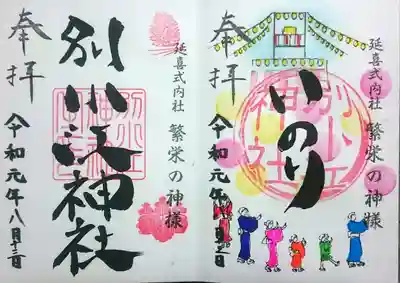 延喜式内社 繁栄の神様
いのり
奉拝
令和元年八月
延喜式内社 繁栄の神様
別小江神社
奉拝
令和元年八月十三日